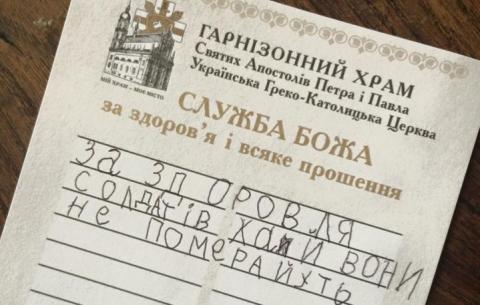 ГАРНІЗОННИЙ ХРАМ
Святих Апостолів Петра і Павла
Українська Греко-Католицька Церква
МІЙ ХРАМ – МОЄ МІСТО
СЛУЖБА БОЖА
за здоров'я і всяке прошення
За ЗП ОРОВЛЯ
СОЛДАТ'ІВ ХАЙ ВОНИ
НЕ ПОМЕРАЙХТЬ